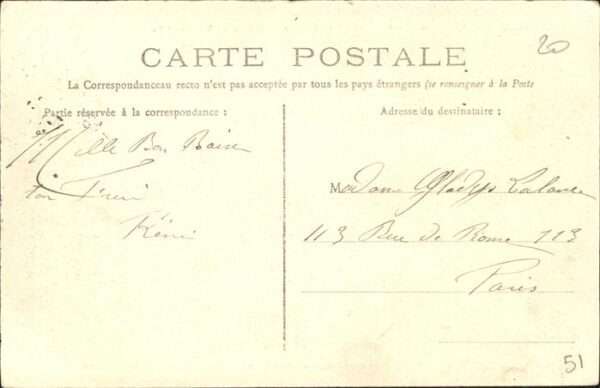 20
CARTE POSTALE
La Correspondanceau recto n'est pas acceptée par tous les pays étrangers (se renseigner à la Poste
Partie réservée à la correspondance :
Adresse du destinataire :
Mille Bon Baiser
ton
Madame Gladys
113 Rue de Rome 113
Paris
51